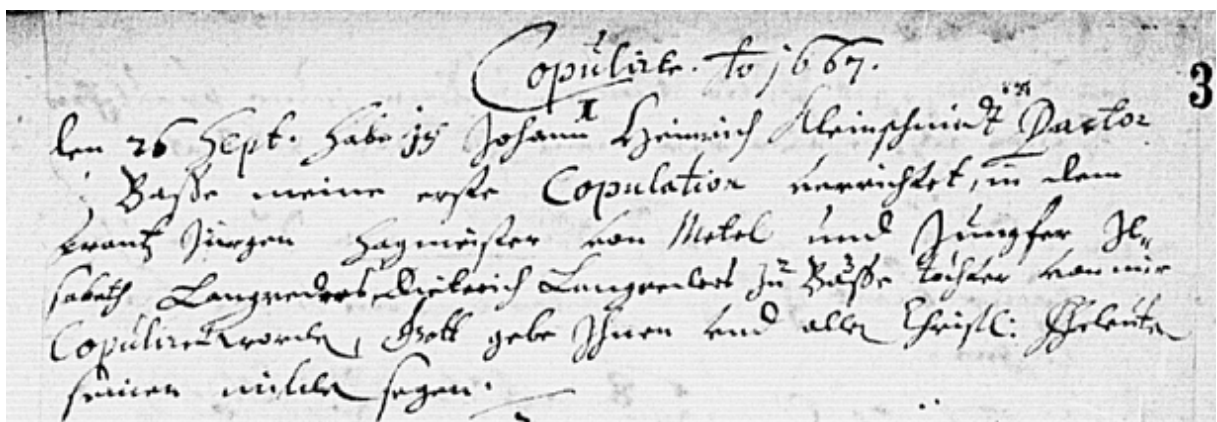 Copulirte. Ao 1667.
3
1
den 26 Sept. habe ich Johann Heinrich Kleinschmidt Pastor
Basse meine erste Copulation verrichtet, in dem
Frantz Jürgen Hagmeister von Metel und Jungfer Il-
sabeth Langreders, Dieterich Langreders zu Basse tochter von mir
Copuliret worden, Gott gebe Ihnen und allen Christl: Eheleuten
seinen milden segen.